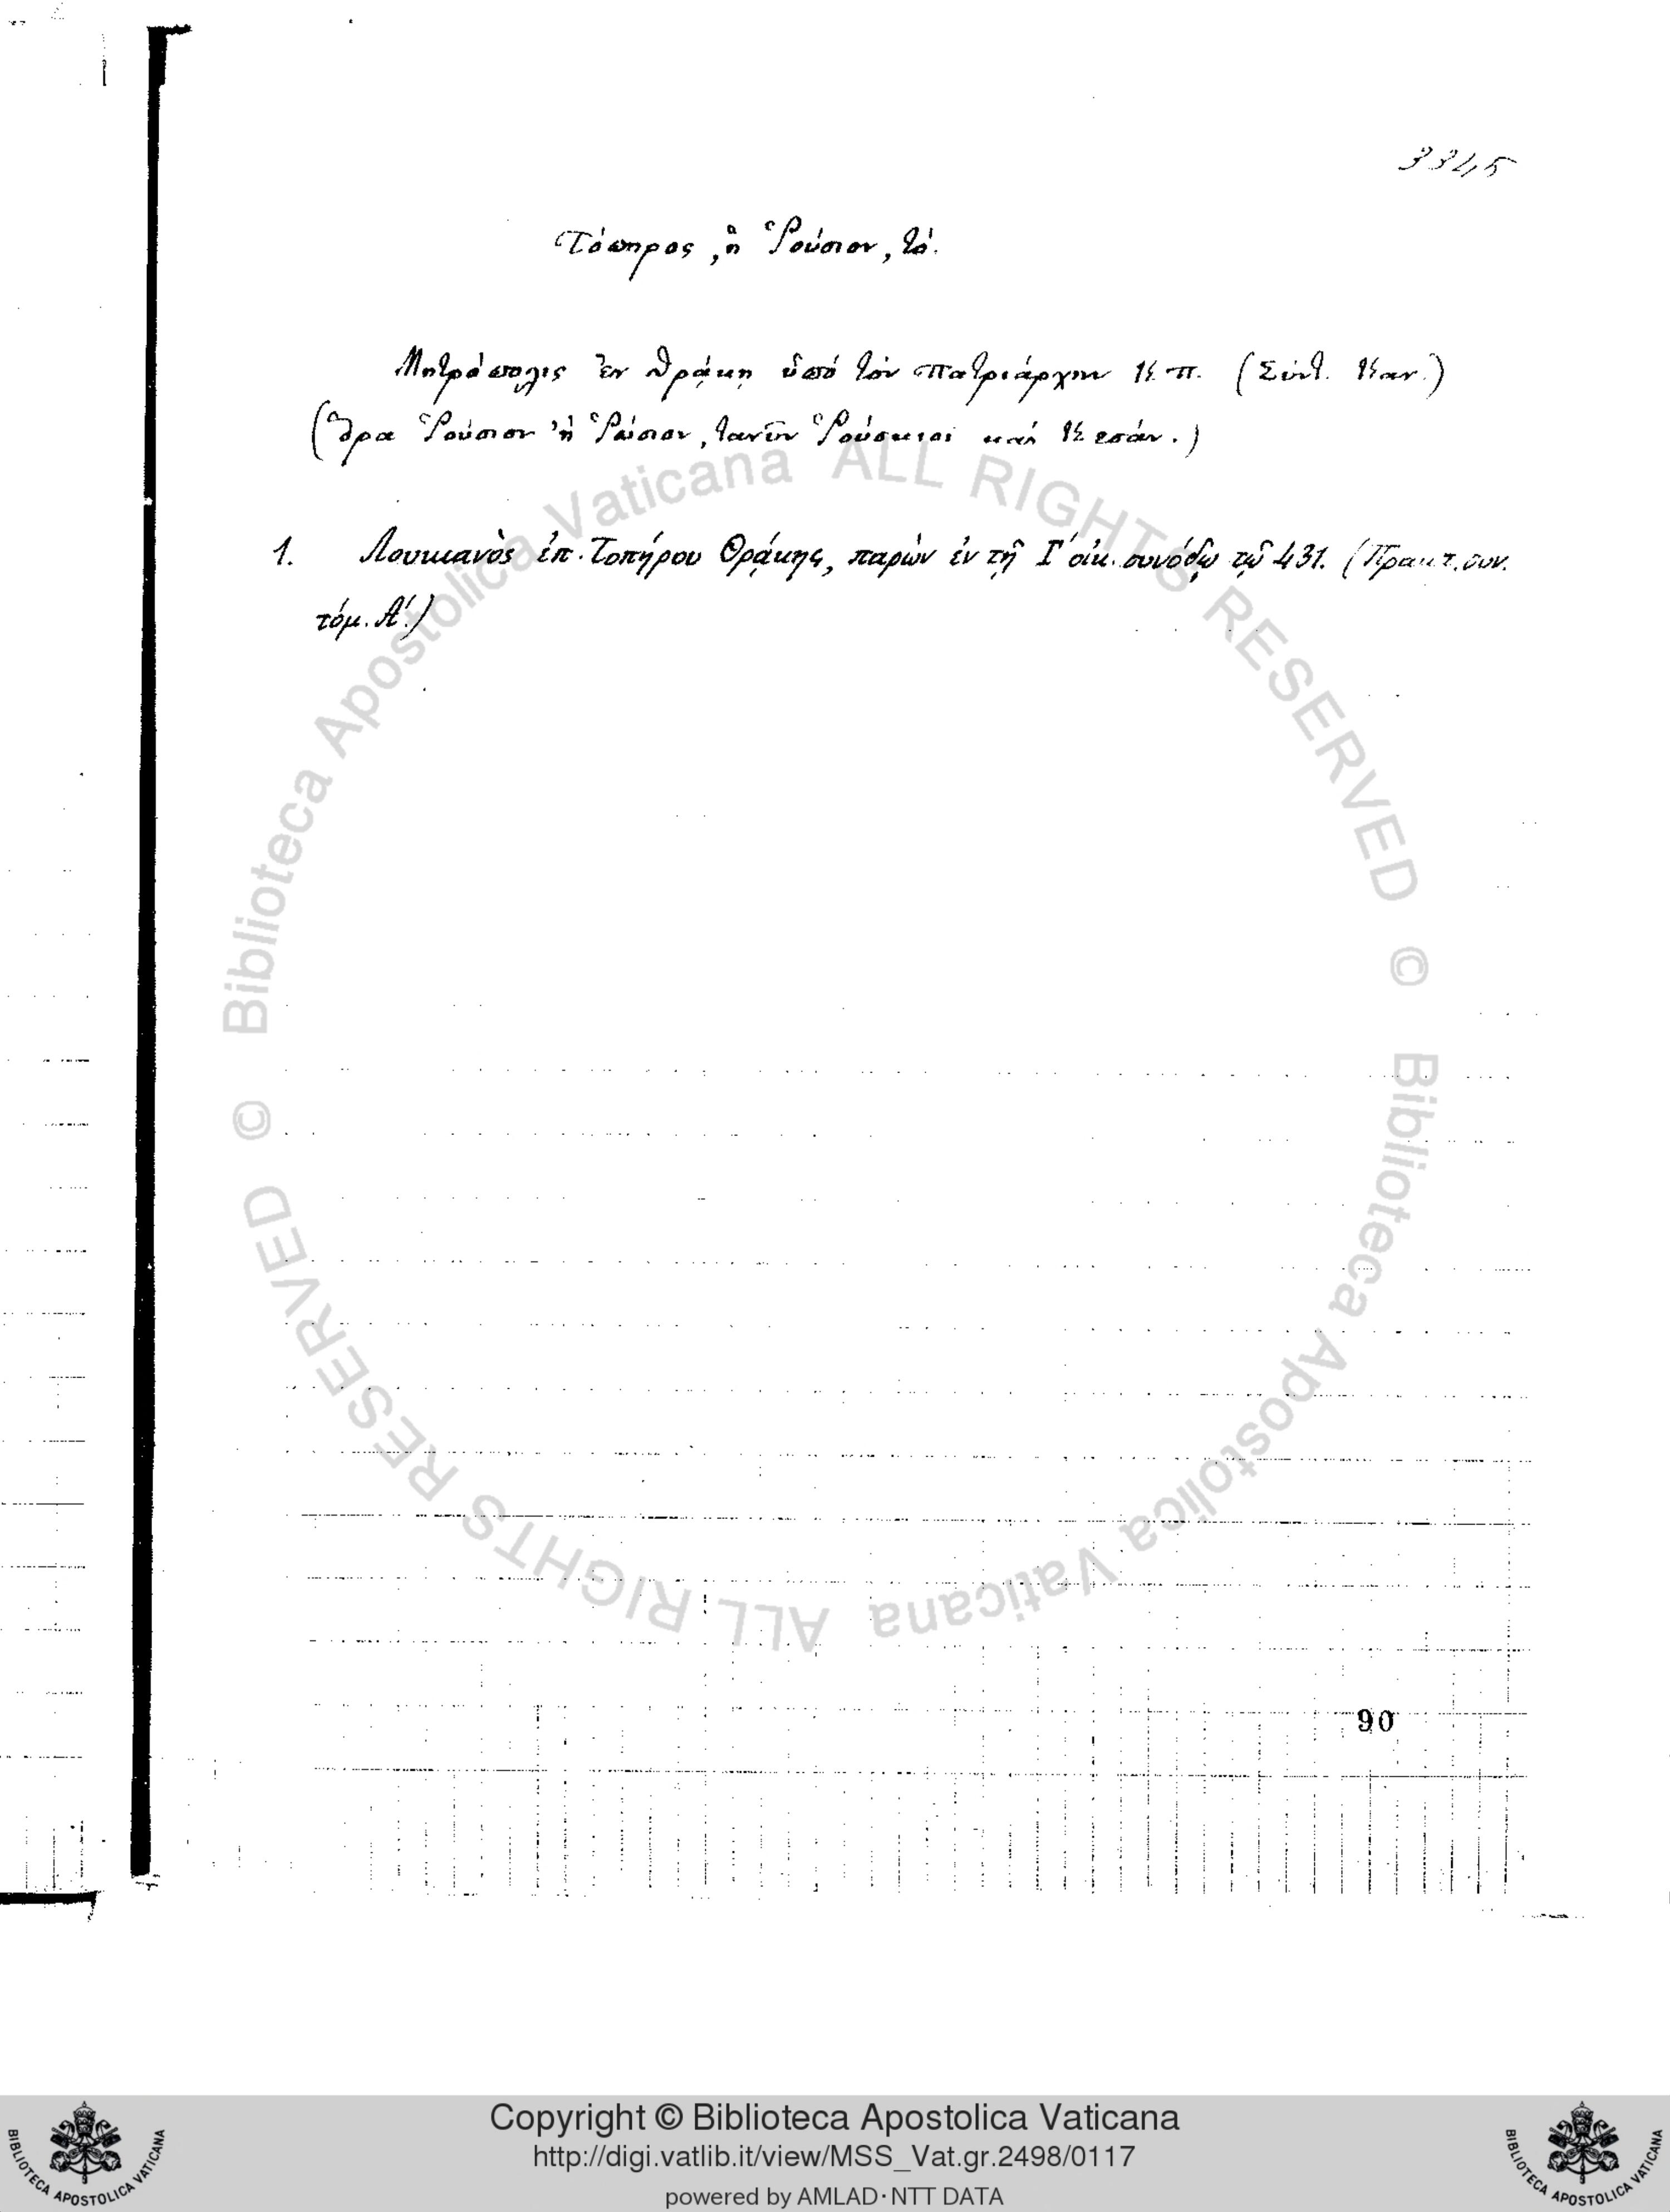 3345
Τόπηρος, ἢ Ῥούσιον, τό.
Μητρόπολις ἐν Θράκῃ ὑπό τόν πατριάρχην Κ.π. (Σύντ. Καν.)
(ὅρα Ῥούσιον ἢ Ῥώσιον, τανῦν Ῥούσκιοϊ καί Κεσάν.)
1. Λουκιανὸς ἐπ. Τοπήρου Θράκης, παρὼν ἐν τῇ Γ' οἰκ. συνόδῳ τῷ 431. (Πρακτ. συν.
τόμ. Α'.)
90
© Biblioteca Apostolica Vaticana ALL RIGHTS RESERVED
© Biblioteca Apostolica Vaticana ALL RIGHTS RESERVED
Copyright © Biblioteca Apostolica Vaticana
http://digi.vatlib.it/view/MSS_Vat.gr.2498/0117
powered by AMLAD·NTT DATA
BIBLIOTECA APOSTOLICA VATICANA
BIBLIOTECA APOSTOLICA VATICANA